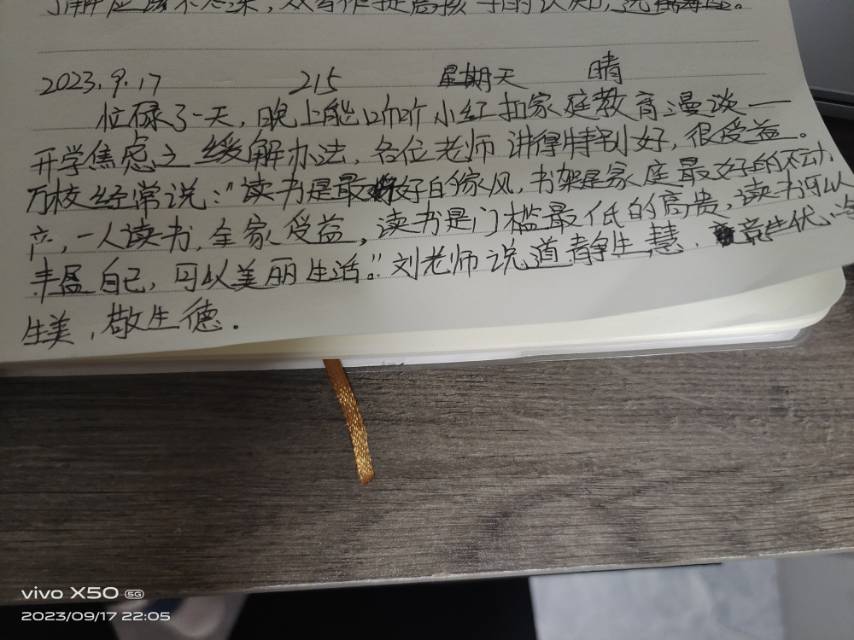 了解应该不心急，从写作提高孩子的认知，
2023.9.17 215 星期天 晴
忙碌了一天，晚上能听听小红拍家庭教育漫谈一
开学焦虑之缓解办法，各位老师讲得特别好，很受益。
万校经常说："读书是最好的家风，书架是家庭最好的不动
产，一人读书，全家受益，读书是门槛最低的高贵，读书可以
丰盈自己，可以美丽生活。"刘老师说道静生慧，竞生优，
生美，敬生德．
vivo X50 5G
2023/09/17 22:05